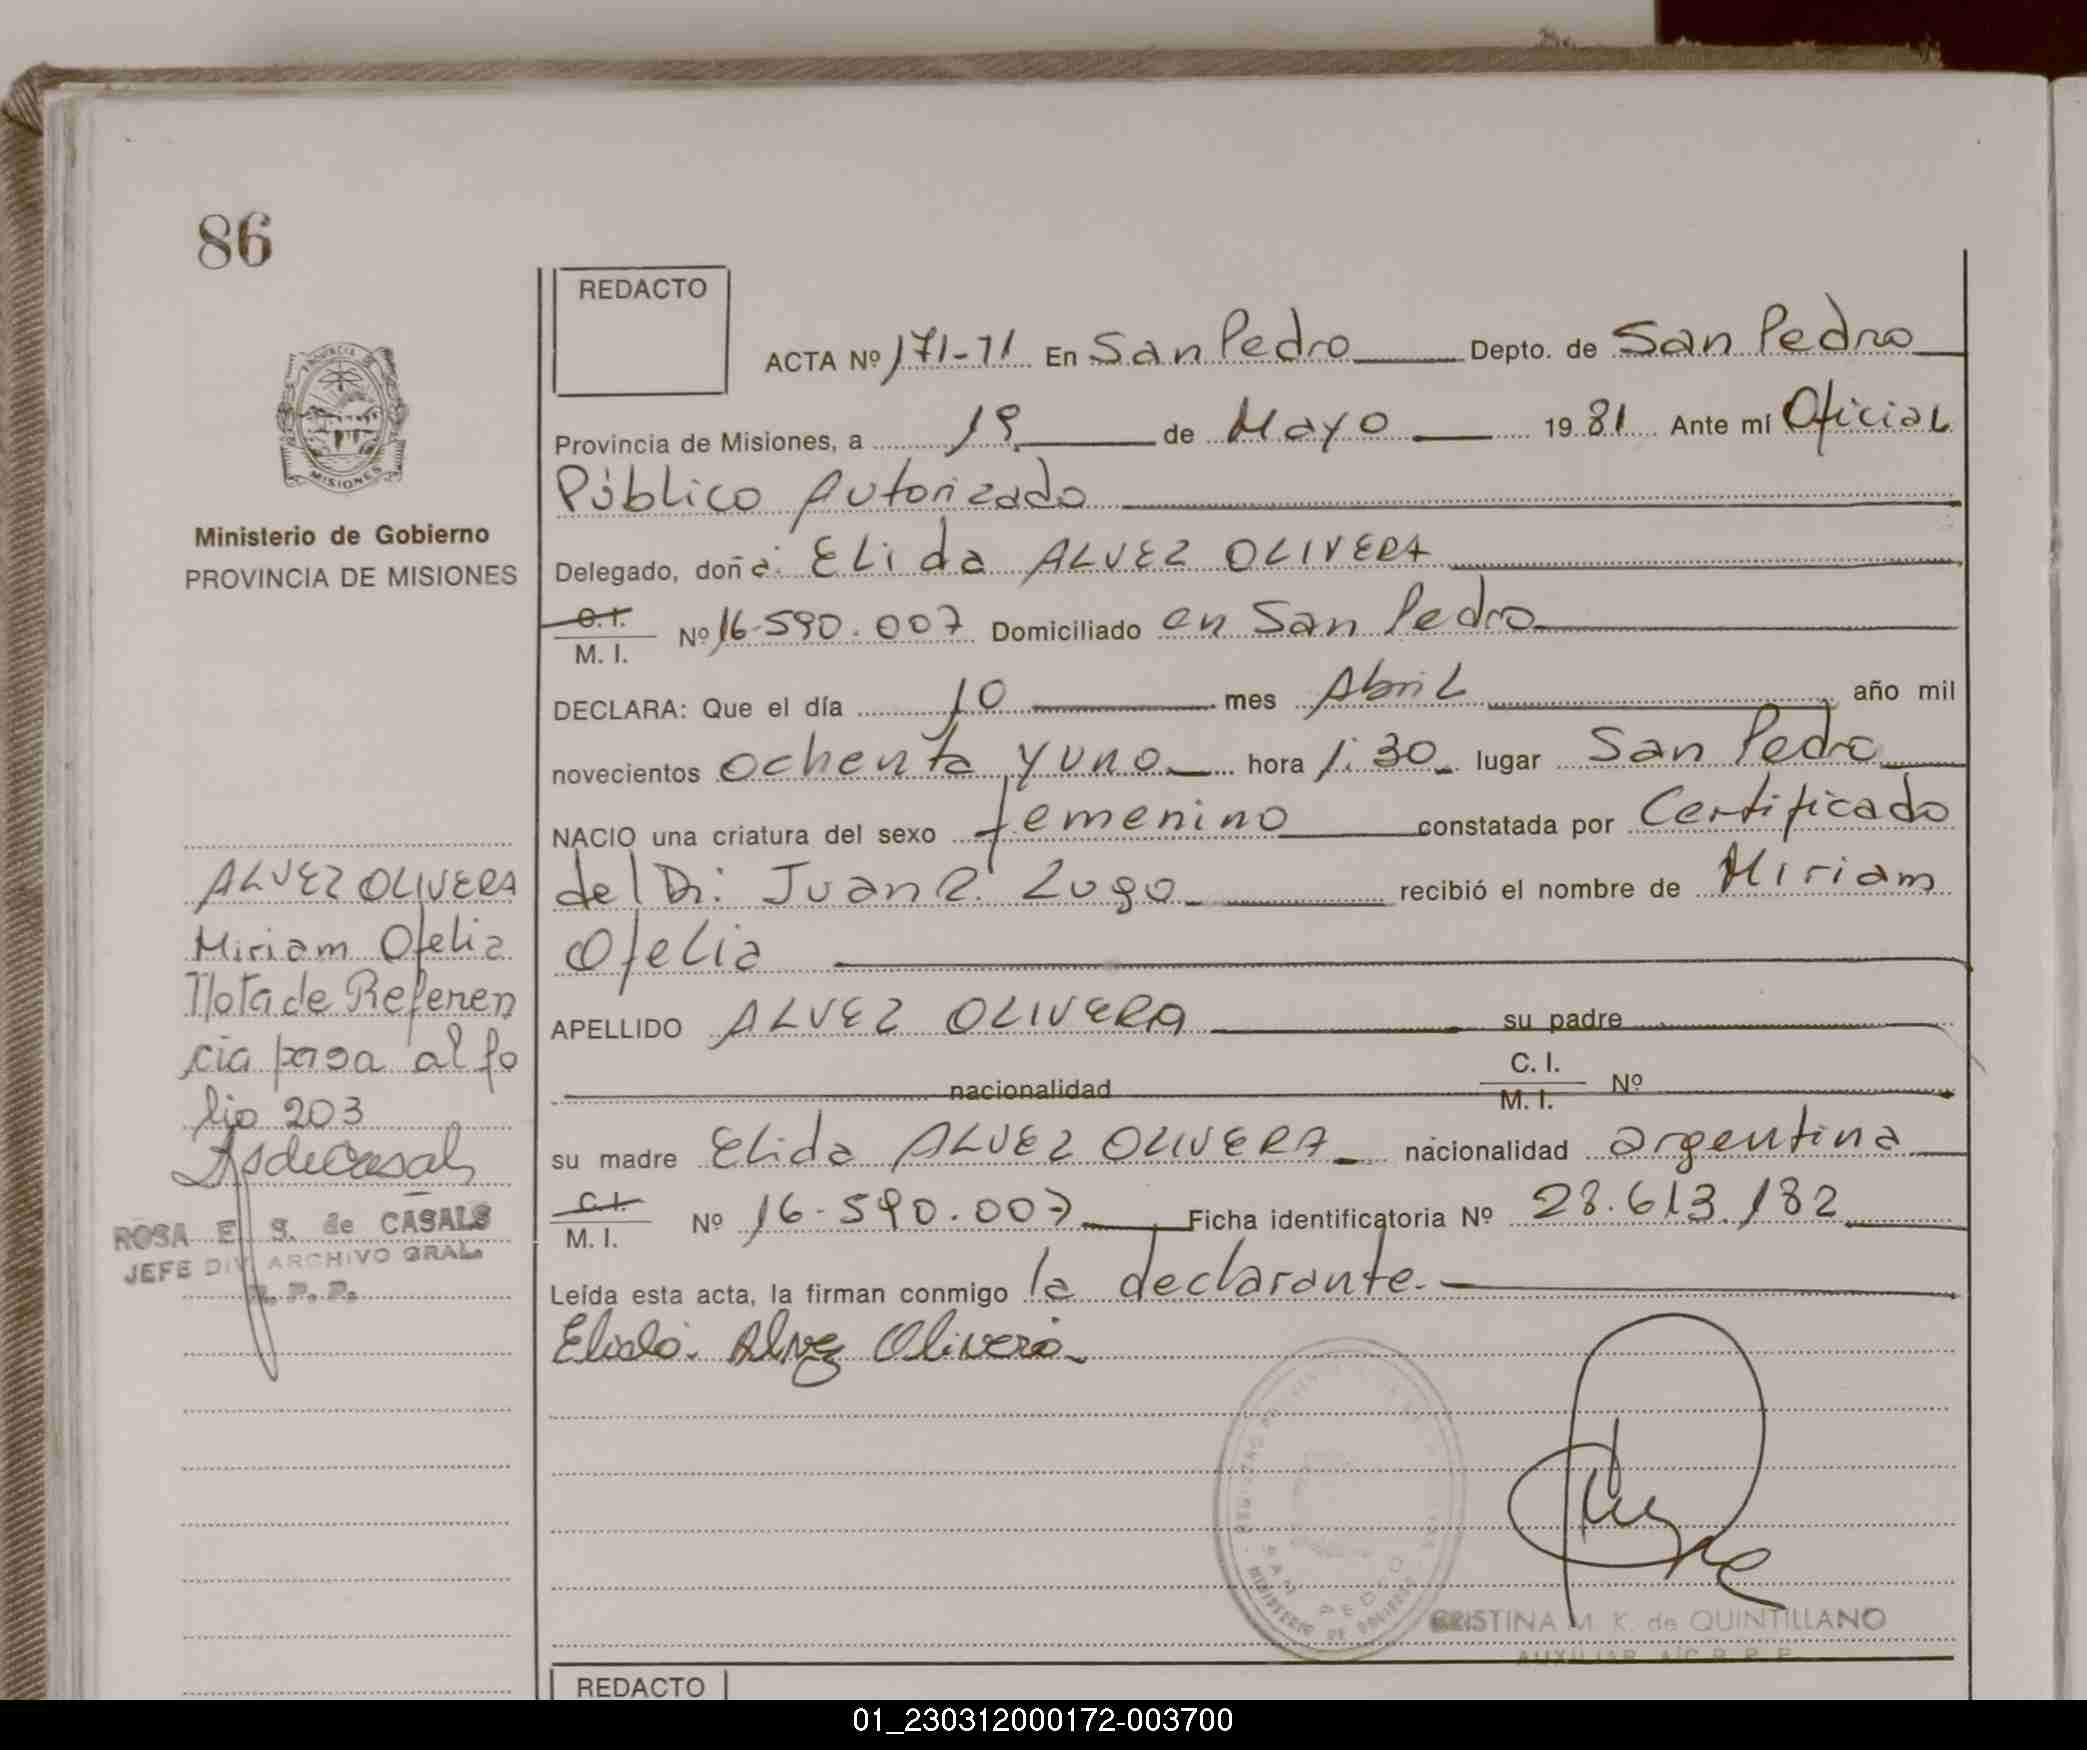 86
REDACTO
ACTA Nº 171-71 En San Pedro Depto. de San Pedro
Provincia de Misiones, a 19 de Mayo 1981 Ante mí Oficial
Público Autorizado
Delegado, doña: Elida ALVEZ OLIVERA
C.I.
M. I. Nº 16.590.007 Domiciliado en San Pedro
DECLARA: Que el día 10 mes Abril año mil
novecientos ochenta y uno hora 1:30 lugar San Pedro
NACIO una criatura del sexo femenino constatada por Certificado
del Dr. Juan R. Lugo recibió el nombre de Miriam
Ofelia
APELLIDO ALVEZ OLIVERA su padre
nacionalidad C. I.
M. I. Nº
su madre Elida ALVEZ OLIVERA nacionalidad argentina
C.I.
M. I. Nº 16.590.007 Ficha identificatoria Nº 28.613.182
Leída esta acta, la firman conmigo la declarante.
Elida Alvez Olivera
SAN PEDRO
MINISTERIO DE GOBIERNO
CRISTINA M. K. de QUINTILLANO
AUXILIAR A/C R. P. P.
REDACTO
PROVINCIA DE
MISIONES
Ministerio de Gobierno
PROVINCIA DE MISIONES
ALVEZ OLIVERA
Miriam Ofelia
Nota de Referen
cia pasa al fo
lio 203
Rsdecasals
ROSA E S. de CASALS
JEFE DIV ARCHIVO GRAL.
R. P. P.
01_230312000172-003700